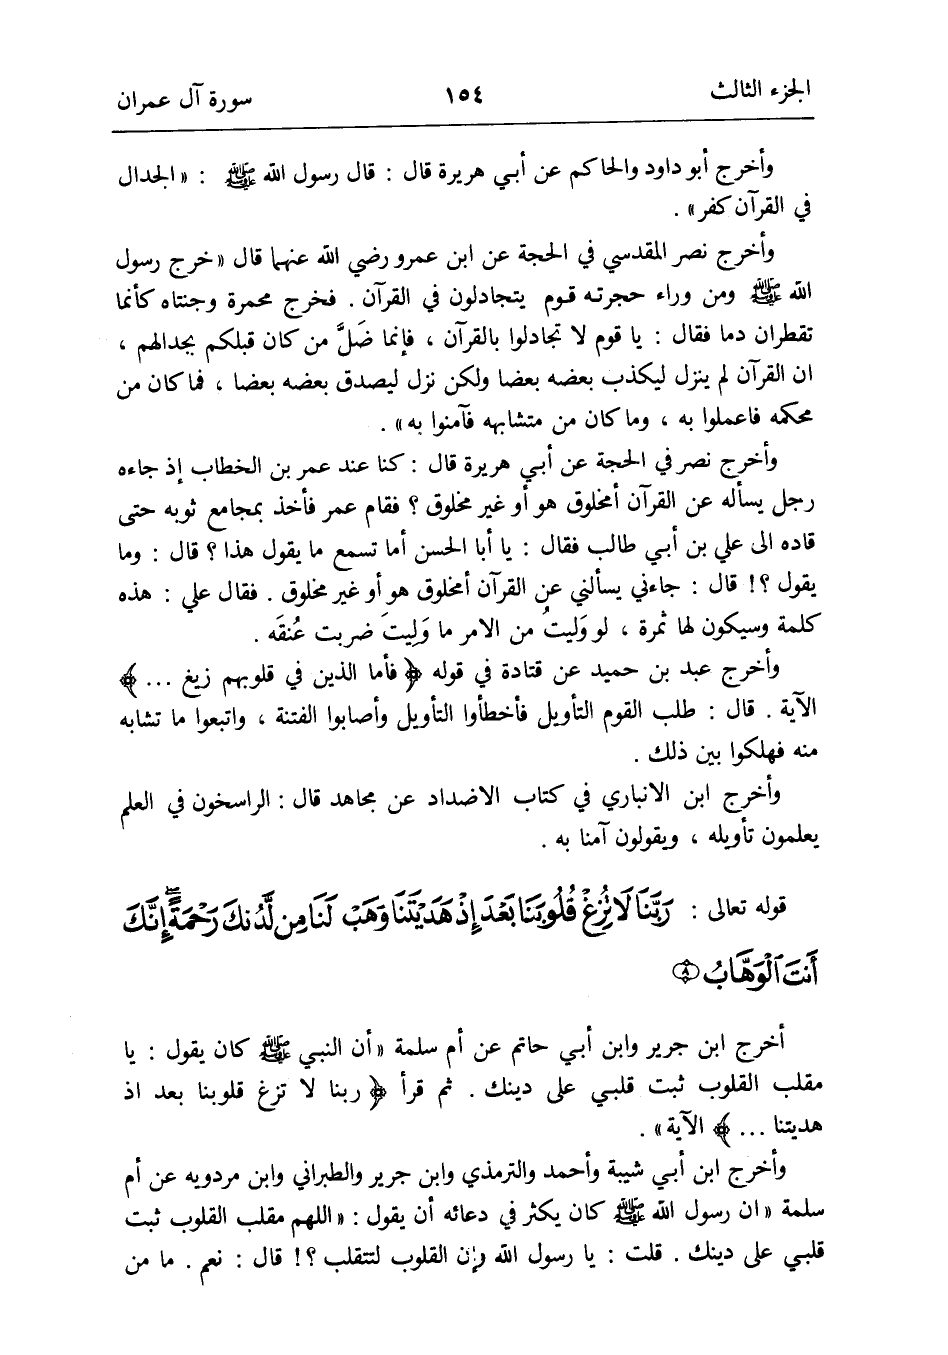 الجزء الثالث ١٥٤ سورة آل عمران
وأخرج أبو داود والحاكم عن أبي هريرة قال : قال رسول الله ﷺ : «الجدال
في القرآن كفر» .
وأخرج نصر المقدسي في الحجة عن ابن عمرو رضي الله عنهما قال «خرج رسول
الله ﷺ ومن وراء حجرته قوم يتجادلون في القرآن . فخرج محمرة وجنتاه كأنما
تقطران دما فقال : يا قوم لا تجادلوا بالقرآن ، فإنما ضَلَّ من كان قبلكم بجدالهم ،
ان القرآن لم ينزل ليكذب بعضه بعضا ولكن نزل ليصدق بعضه بعضا ، فما كان من
محكمه فاعملوا به ، وما كان من متشابهه فآمنوا به» .
وأخرج نصر في الحجة عن أبي هريرة قال : كنا عند عمر بن الخطاب إذ جاءه
رجل يسأله عن القرآن أمخلوق هو أو غير مخلوق ؟ فقام عمر فأخذ بمجامع ثوبه حتى
قاده الى علي بن أبي طالب فقال : يا أبا الحسن أما تسمع ما يقول هذا ؟ قال : وما
يقول ؟! قال : جاءني يسألني عن القرآن أمخلوق هو أو غير مخلوق . فقال علي : هذه
كلمة وسيكون لها ثمرة ، لو وَليتُ من الامر ما وَلِيتَ ضربت عُنقَه .
وأخرج عبد بن حميد عن قتادة في قوله ﴿ فأما الذين في قلوبهم زيغ ... ﴾
الآية . قال : طلب القوم التأويل فأخطأوا التأويل وأصابوا الفتنة ، واتبعوا ما تشابه
منه فهلكوا بين ذلك .
وأخرج ابن الانباري في كتاب الاضداد عن مجاهد قال : الراسخون في العلم
يعلمون تأويله ، ويقولون آمنا به .
قوله تعالى : رَبَّنَا لَا تُزِغْ قُلُوبَنَا بَعْدَ إِذْ هَدَيْتَنَا وَهَبْ لَنَا مِن لَّدُنكَ رَحْمَةًۖ إِنَّكَ
أَنتَ ٱلْوَهَّابُ ٨
أخرج ابن جرير وابن أبي حاتم عن أم سلمة «أن النبي ﷺ كان يقول : يا
مقلب القلوب ثبت قلبي على دينك . ثم قرأ ﴿ ربنا لا تزغ قلوبنا بعد اذ
هديتنا ... ﴾ الآية» .
وأخرج ابن أبي شيبة وأحمد والترمذي وابن جرير والطبراني وابن مردويه عن أم
سلمة «ان رسول الله ﷺ كان يكثر في دعائه أن يقول : «اللهم مقلب القلوب ثبت
قلبي على دينك . قلت : يا رسول الله وإن القلوب لتتقلب ؟! قال : نعم . ما من